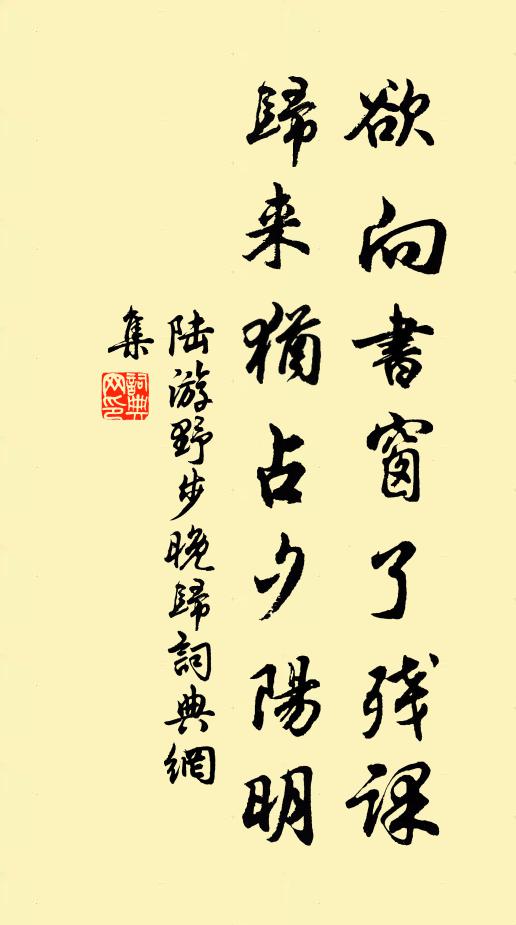 欲向書窗了残課
歸来猶占夕陽明
陆游野步晚歸詞典網
集
詞典
网印